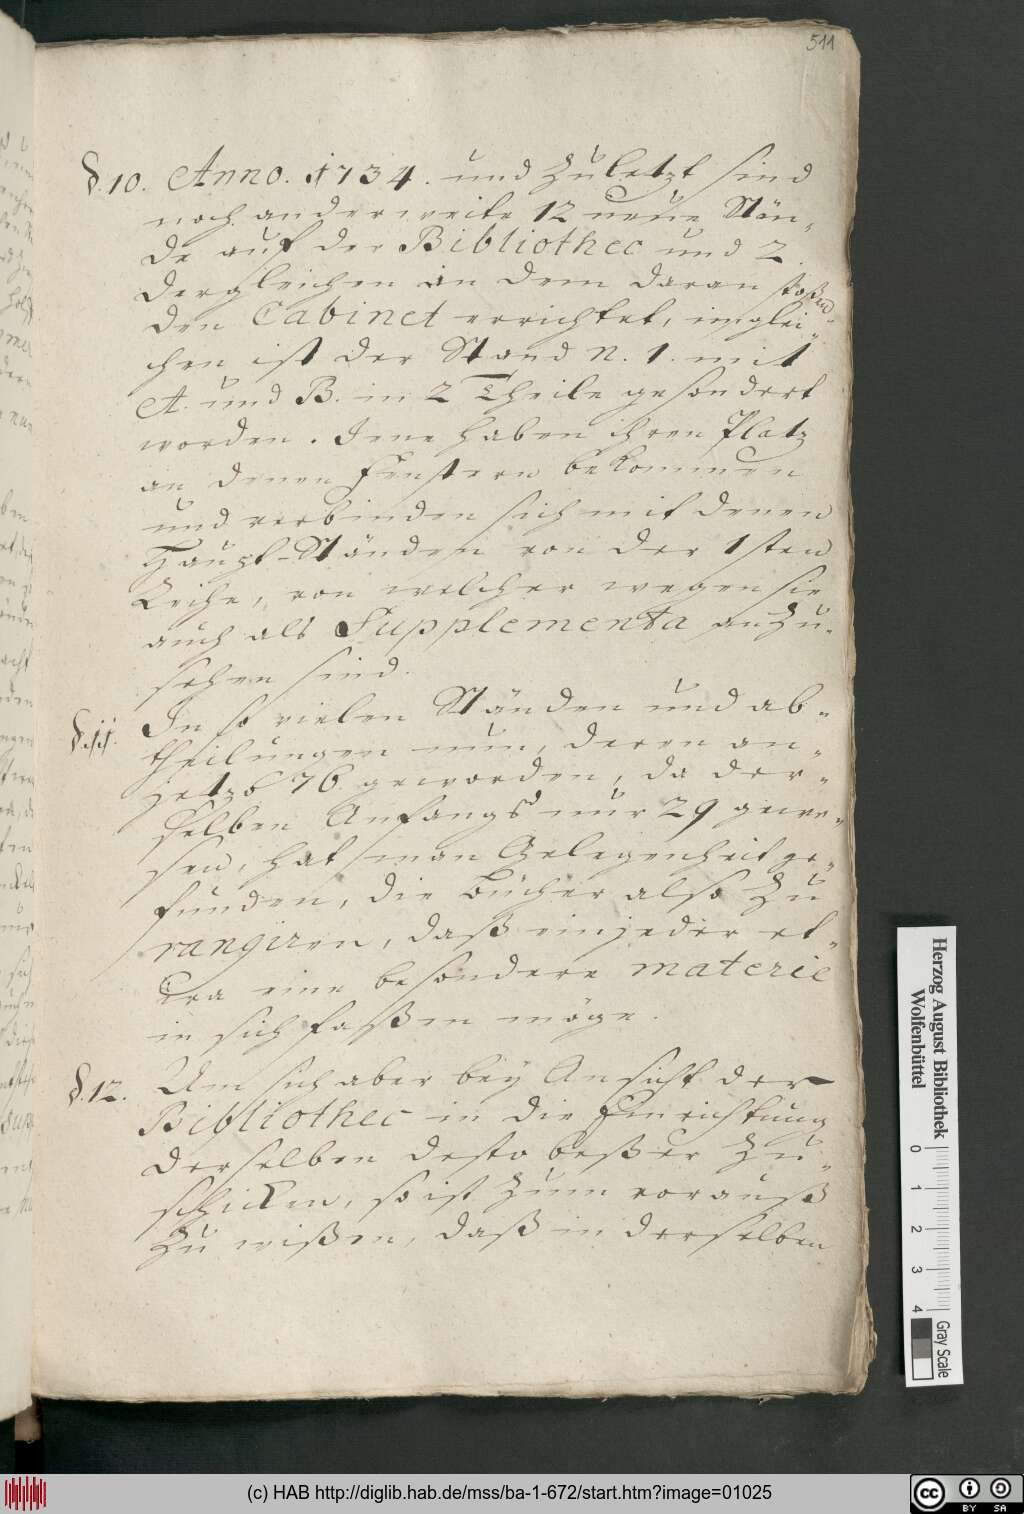 511
§.10. Anno. 1734. und zuletzt sind
noch anderweite 12 neue Stän-
de auf der Bibliothec und 2
dergleichen in dem daran stoßen-
den Cabinet errichtet, inglei-
chen ist der Stand N. 1. mit
A. und B. in 2 Theile gesondert
worden. Jene haben ihren Platz
an denen Fenstern bekommen
und verbinden sich mit denen
Haupt-Ständen von der 1sten
Reihe, von welcher wegen sie
auch als Supplementa anzu-
sehen sind.
§.11. In so vielen Ständen und ab-
theilungen nun, deren an-
jetzo 76. geworden, da der-
selben Anfangs nur 29 gewe-
sen, hat man Gelegenheit ge-
funden, die Bücher also zu
rangiren, daß ein jeder et-
wa eine besondere materie
in sich faßen möge.
§.12. Um sich aber bey Ansicht der
Bibliothec in die Einrichtung
derselben desto beßer zu-
schicken, so ist zum vorauß
zu wißen, daß in derselben
Herzog August Bibliothek
Wolfenbüttel
0 1 2 3 4
Gray Scale
(c) HAB http://diglib.hab.de/mss/ba-1-672/start.htm?image=01025
cc BY SA